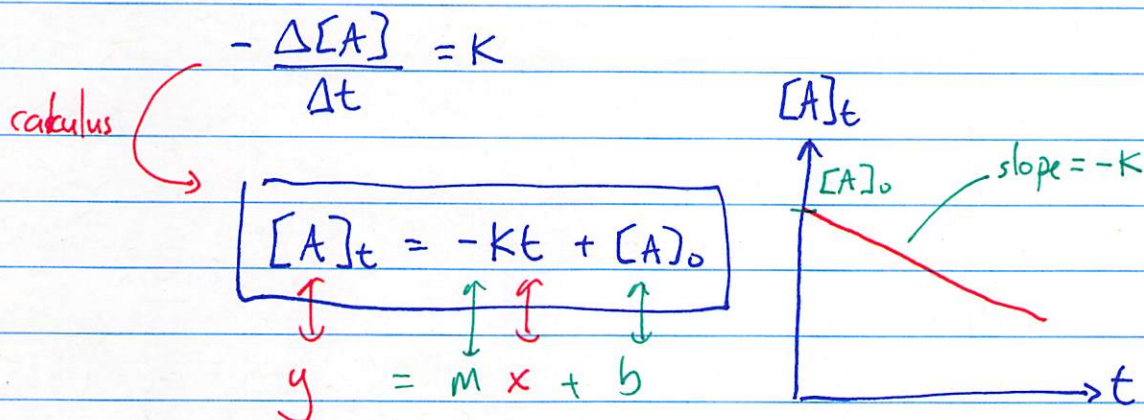 - Δ[A] / Δt = K
calculus
[A]t = -Kt + [A]₀
y = m x + b
[A]t
[A]₀
slope = -K
t